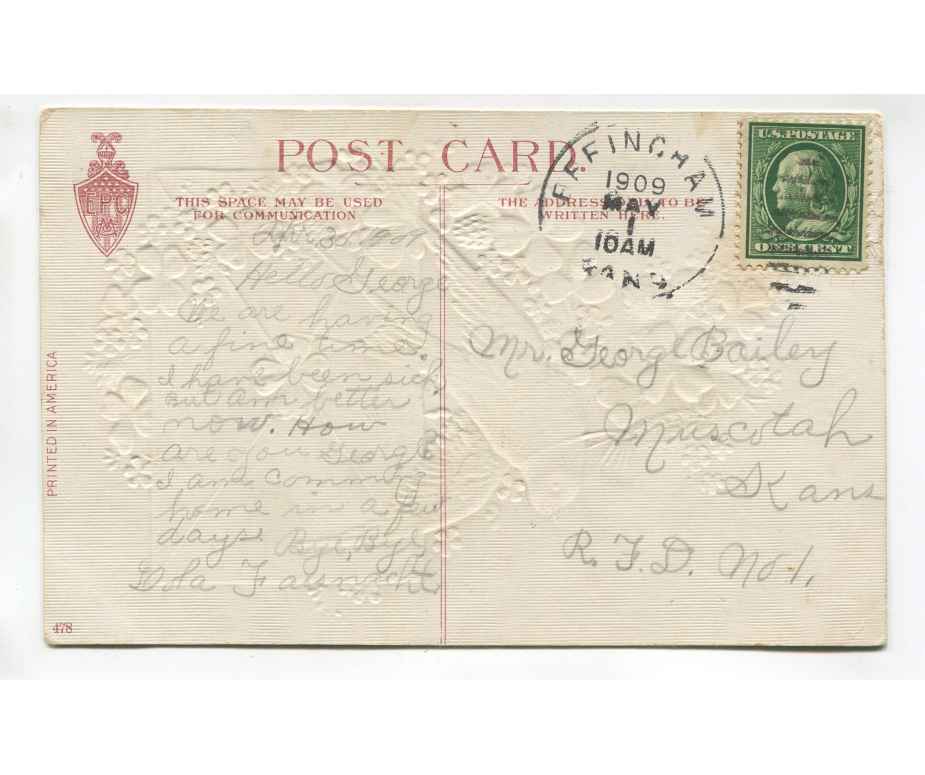 POST CARD.
THIS SPACE MAY BE USED
FOR COMMUNICATION
THE ADDRESS TO BE
WRITTEN HERE.
EPC
PRINTED IN AMERICA
478
EFFINGHAM
1909
MAY
1
10AM
KANS.
U.S. POSTAGE
ONE CENT
Apr. 30
Hello George
We are having
a fine time.
I have been sick
but am better
now. How
are you George
I am comming
home in a few
days. Bye, Bye,
Fasnacht
Mr. George Bailey
Muscotah
Kans
R. F. D. No. 1.